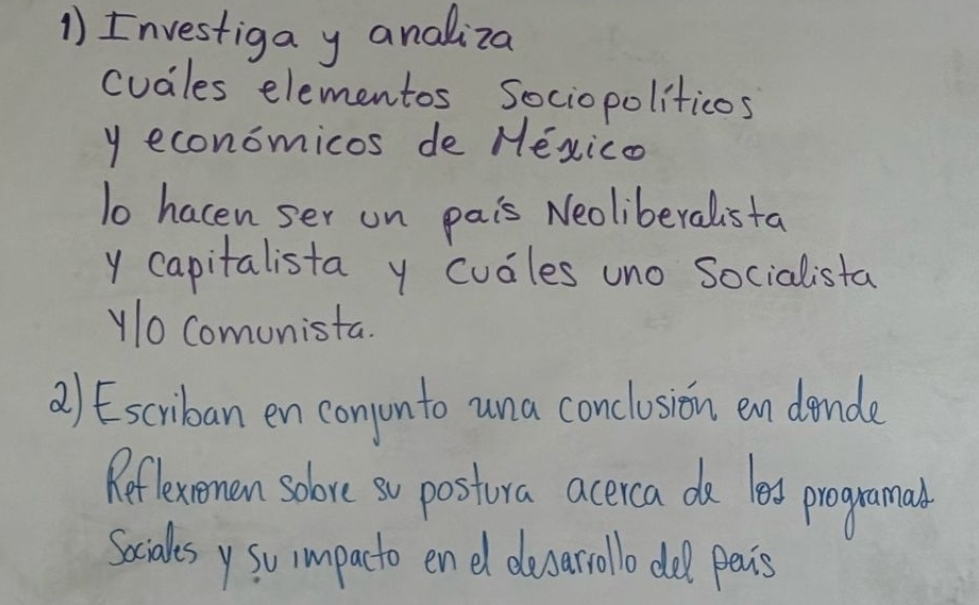 1) Investiga y analiza
cuáles elementos Sociopolíticos
y económicos de México
lo hacen ser un país Neoliberalista
y capitalista y cuáles uno Socialista
y/o comunista.
2) Escriban en conjunto una conclusión en donde
Reflexionen sobre su postura acerca de los programas
Sociales y su impacto en el desarrollo del país